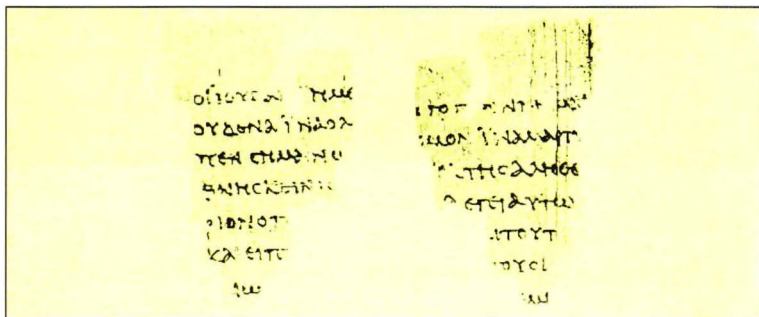 ΟΙΪΟΥΔΑΙ ΗΜΕ
ΟΥΔΕΝΑΪΝΑΟΛ
ΠΕΝϹΗΜΑΙΝΩ
ΘΝΗϹΚΕΙΝΙϹ
ΡΙΟΝΟΠ
ΚΑΙΕΙΠ
ΑΙΩ
ΤΟΓ ΕΝΝΗΜΑΙ
ϹΜΟΝΪΝΑΜΑΡΤΥ
ΕΚΤΗϹΑΛΗΘΕ
ΛΕΓΕΙΑΥΤΩ
ΑΙΤΟΥΤ
ΤΟΥϹΙ
ΜΙ